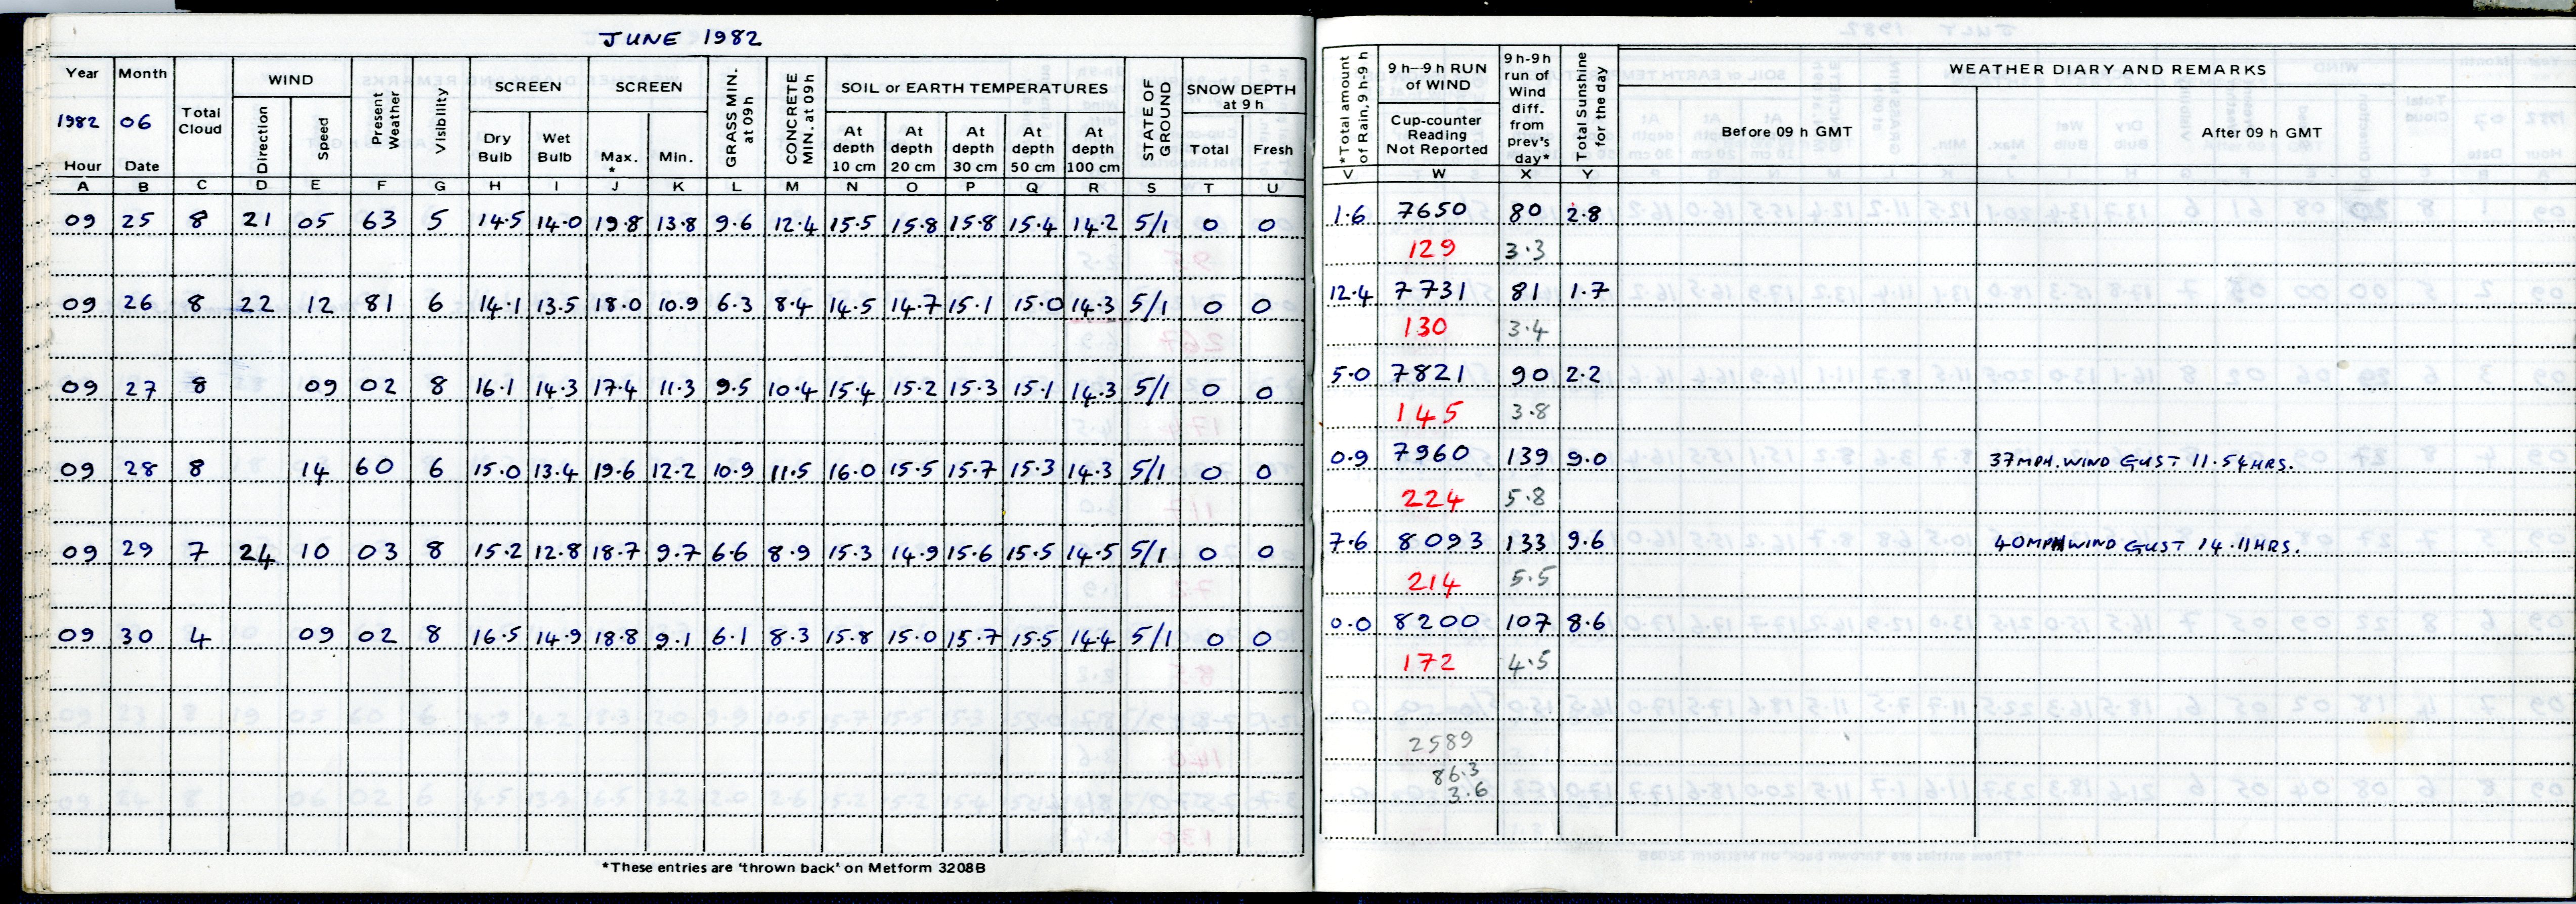 JUNE 1982
Year Month Total Cloud WIND Present Weather Visibility SCREEN SCREEN GRASS MIN. at 09h CONCRETE MIN. at 09h SOIL or EARTH TEMPERATURES STATE OF GROUND SNOW DEPTH at 9 h
1982 06 Direction Speed Dry Bulb Wet Bulb Max. * Min. At depth 10 cm At depth 20 cm At depth 30 cm At depth 50 cm At depth 100 cm Total Fresh
Hour Date
A B C D E F G H I J K L M N O P Q R S T U
09 25 8 21 05 63 5 14.5 14.0 19.8 13.8 9.6 12.4 15.5 15.8 15.8 15.4 14.2 5/1 0 0
09 26 8 22 12 81 6 14.1 13.5 18.0 10.9 6.3 8.4 14.5 14.7 15.1 15.0 14.3 5/1 0 0
09 27 8 09 02 8 16.1 14.3 17.4 11.3 9.5 10.4 15.4 15.2 15.3 15.1 14.3 5/1 0 0
09 28 8 14 60 6 15.0 13.4 19.6 12.2 10.9 11.5 16.0 15.5 15.7 15.3 14.3 5/1 0 0
09 29 7 24 10 03 8 15.2 12.8 18.7 9.7 6.6 8.9 15.3 14.9 15.6 15.5 14.5 5/1 0 0
09 30 4 09 02 8 16.5 14.9 18.8 9.1 6.1 8.3 15.8 15.0 15.7 15.5 14.4 5/1 0 0
*These entries are 'thrown back' on Metform 3208B
*Total amount of Rain, 9 h-9 h 9 h—9 h RUN of WIND 9 h-9h run of Wind diff. from prev's day* Total Sunshine for the day WEATHER DIARY AND REMARKS
Cup-counter Reading Not Reported Before 09 h GMT After 09 h GMT
V W X Y
1.6 7650 80 2.8
129 3.3
12.4 7731 81 1.7
130 3.4
5.0 7821 90 2.2
145 3.8
0.9 7960 139 9.0 37MPH. WIND GUST 11.54HRS.
224 5.8
7.6 8093 133 9.6 40MPH WIND GUST 14.11HRS.
214 5.5
0.0 8200 107 8.6
172 4.5
2589
86.3
3.6